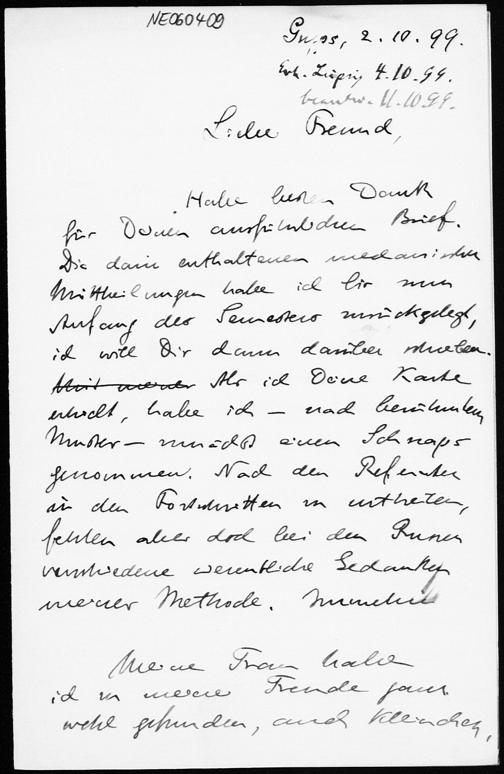 NE060409
2.10.99.
Erh. Leipzig 4.10.99.
beantw. 11.10.99.
Lieber Freund,
Habe besten Dank
für Deinen ausführlichen Brief.
Die darin enthaltenen mechanischen
Mittheilungen habe ich bis zum
Anfang des Semesters zurückgelegt,
ich will Dir dann darüber schreiben.
Mit meiner Als ich Deine Karte
erhielt, habe ich – nach berühmtem
Muster – zunächst einen Schnaps
genommen. Nach den Referaten
in den Fortschritten zu urtheilen,
fehlen aber doch bei den Russen
verschiedene wesentliche Gedanken
meiner Methode.
Meine Frau habe
ich zu meiner Freude ganz
wohl gefunden, auch Kleinchen,